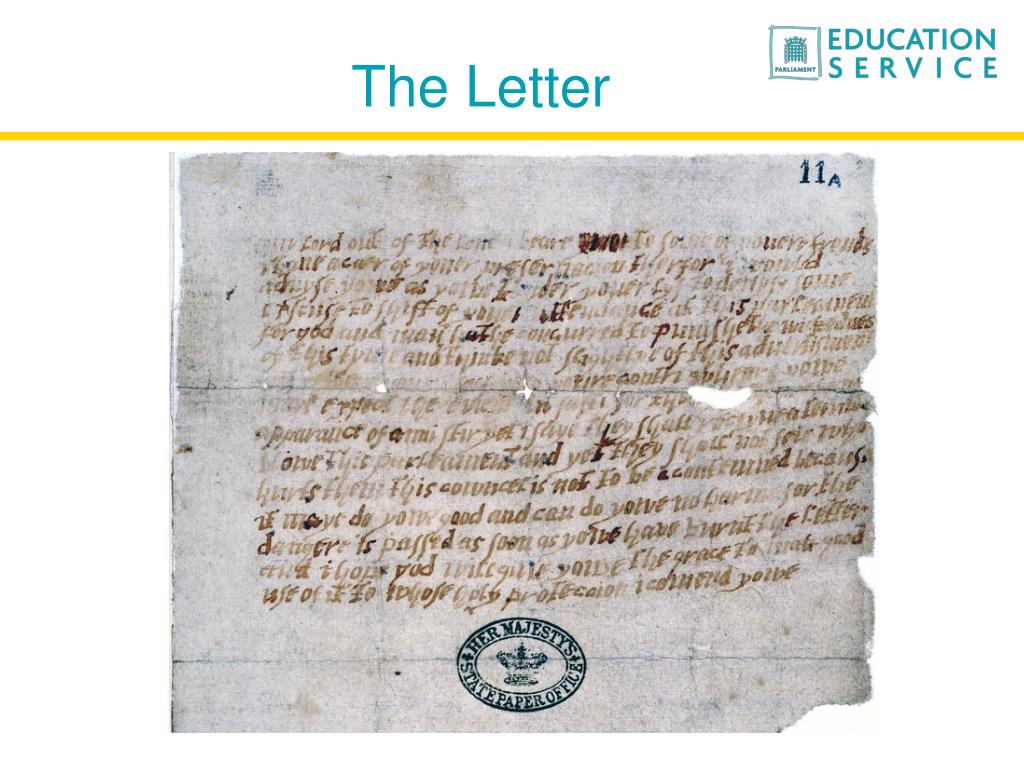 The Letter
PARLIAMENT
EDUCATION
SERVICE
11A
lord out of the beare to some of youere frends
a caer of youer preseruacion therfor i would
aduyse yowe as yowe tender youer lyf to deuyse some
excuse to shift of youer attendance at this parleament
for god and man hathe concurred to punishe the wickednes
of this tyme and thinke not slightlye of this aduertisment
youre contri wheare yowe
maye expect the euent in safti for
apparance of anni stir yet i saye they shall receyue a terrible
blowe this parleament and yet they shall not seie who
hurts them this cowncel is not to be contemned because
it maye do yowe good and can do yowe no harme for the
dangere is passed as soon as yowe have burnt the letter
and i hope god will giue yowe the grace to mak good
use of it to whose holy proteccion i comend yowe
HER MAJESTY'S
STATE PAPER OFFICE